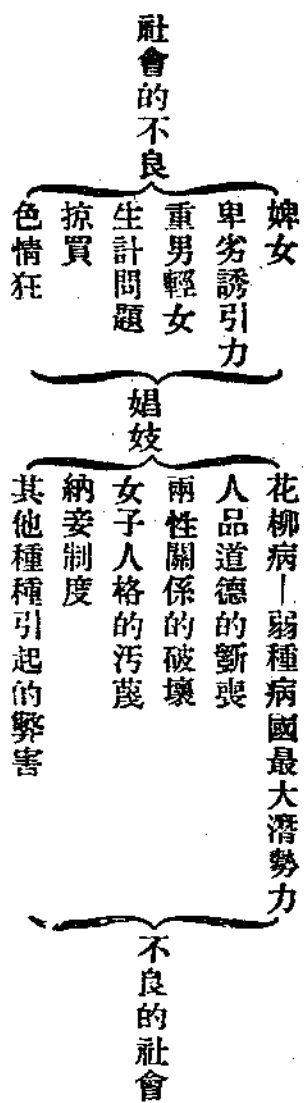 社會的不良
婢女
卑劣誘引力
重男輕女
生計問題
掠買
色情狂
娼妓
花柳病—弱種病國最大潛勢力
人品道德的斲喪
兩性關係的破壞
女子人格的汚蔑
納妾制度
其他種種引起的弊害
不良的社會